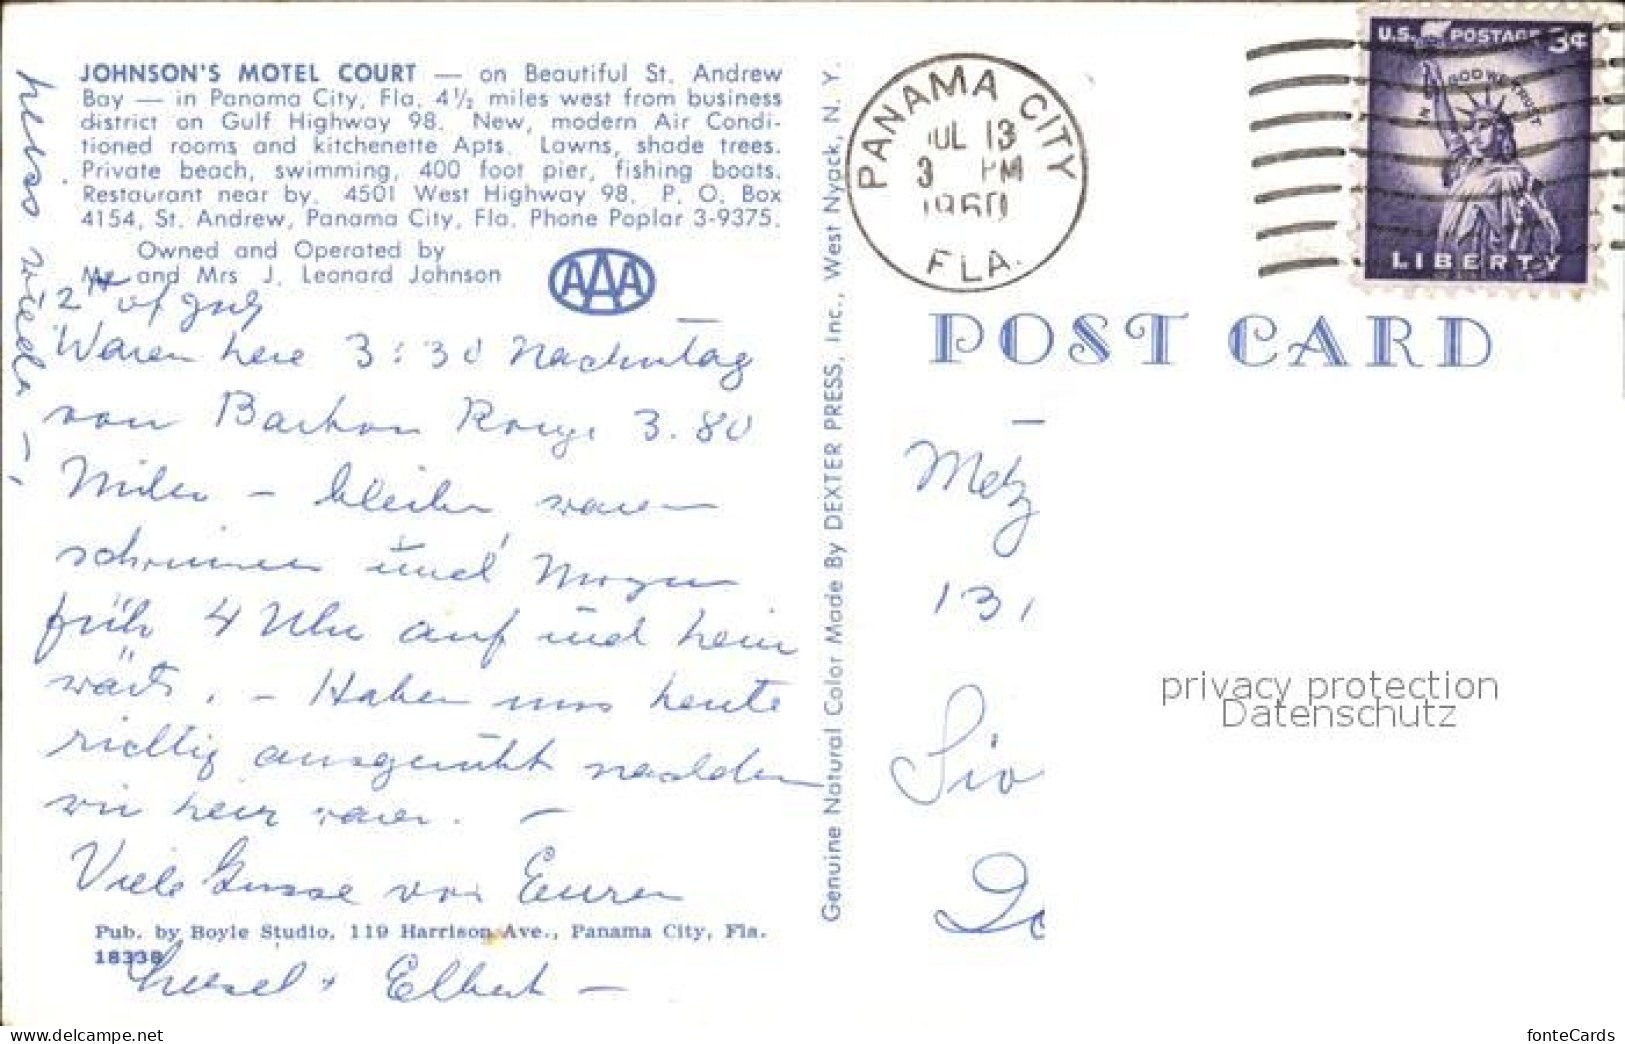 JOHNSON'S MOTEL COURT — on Beautiful St. Andrew
Bay — in Panama City, Fla. 4½ miles west from business
district on Gulf Highway 98. New, modern Air Condi-
tioned rooms and kitchenette Apts. Lawns, shade trees.
Private beach, swimming, 400 foot pier, fishing boats.
Restaurant near by. 4501 West Highway 98. P. O. Box
4154, St. Andrew, Panama City, Fla. Phone Poplar 3-9375.
Owned and Operated by
Mr. and Mrs J. Leonard Johnson
AAA
12th of July
Waren here 3:30 Nachmitag
von Bathon Rouge 3.80
Miles – bleiben waren
schwimmen und Morgen
früh 4 Uhr auf und heim
wärts. – Haben uns heute
richtig ausgeruht nachdem
wir heir waren. –
Viele Grusse von Euren
Pub. by Boyle Studio, 119 Harrison Ave., Panama City, Fla.
18338
+ Elbert –
Genuine Natural Color Made By DEXTER PRESS, Inc., West Nyack, N. Y.
PANAMA CITY
JUL 13
3 PM
1960
FLA.
U.S. POSTAGE 3¢
IN GOD WE TRUST
LIBERTY
POST CARD
Metz
131
Sio
privacy protection
Datenschutz
https://www.delcampe.net
fonteCards